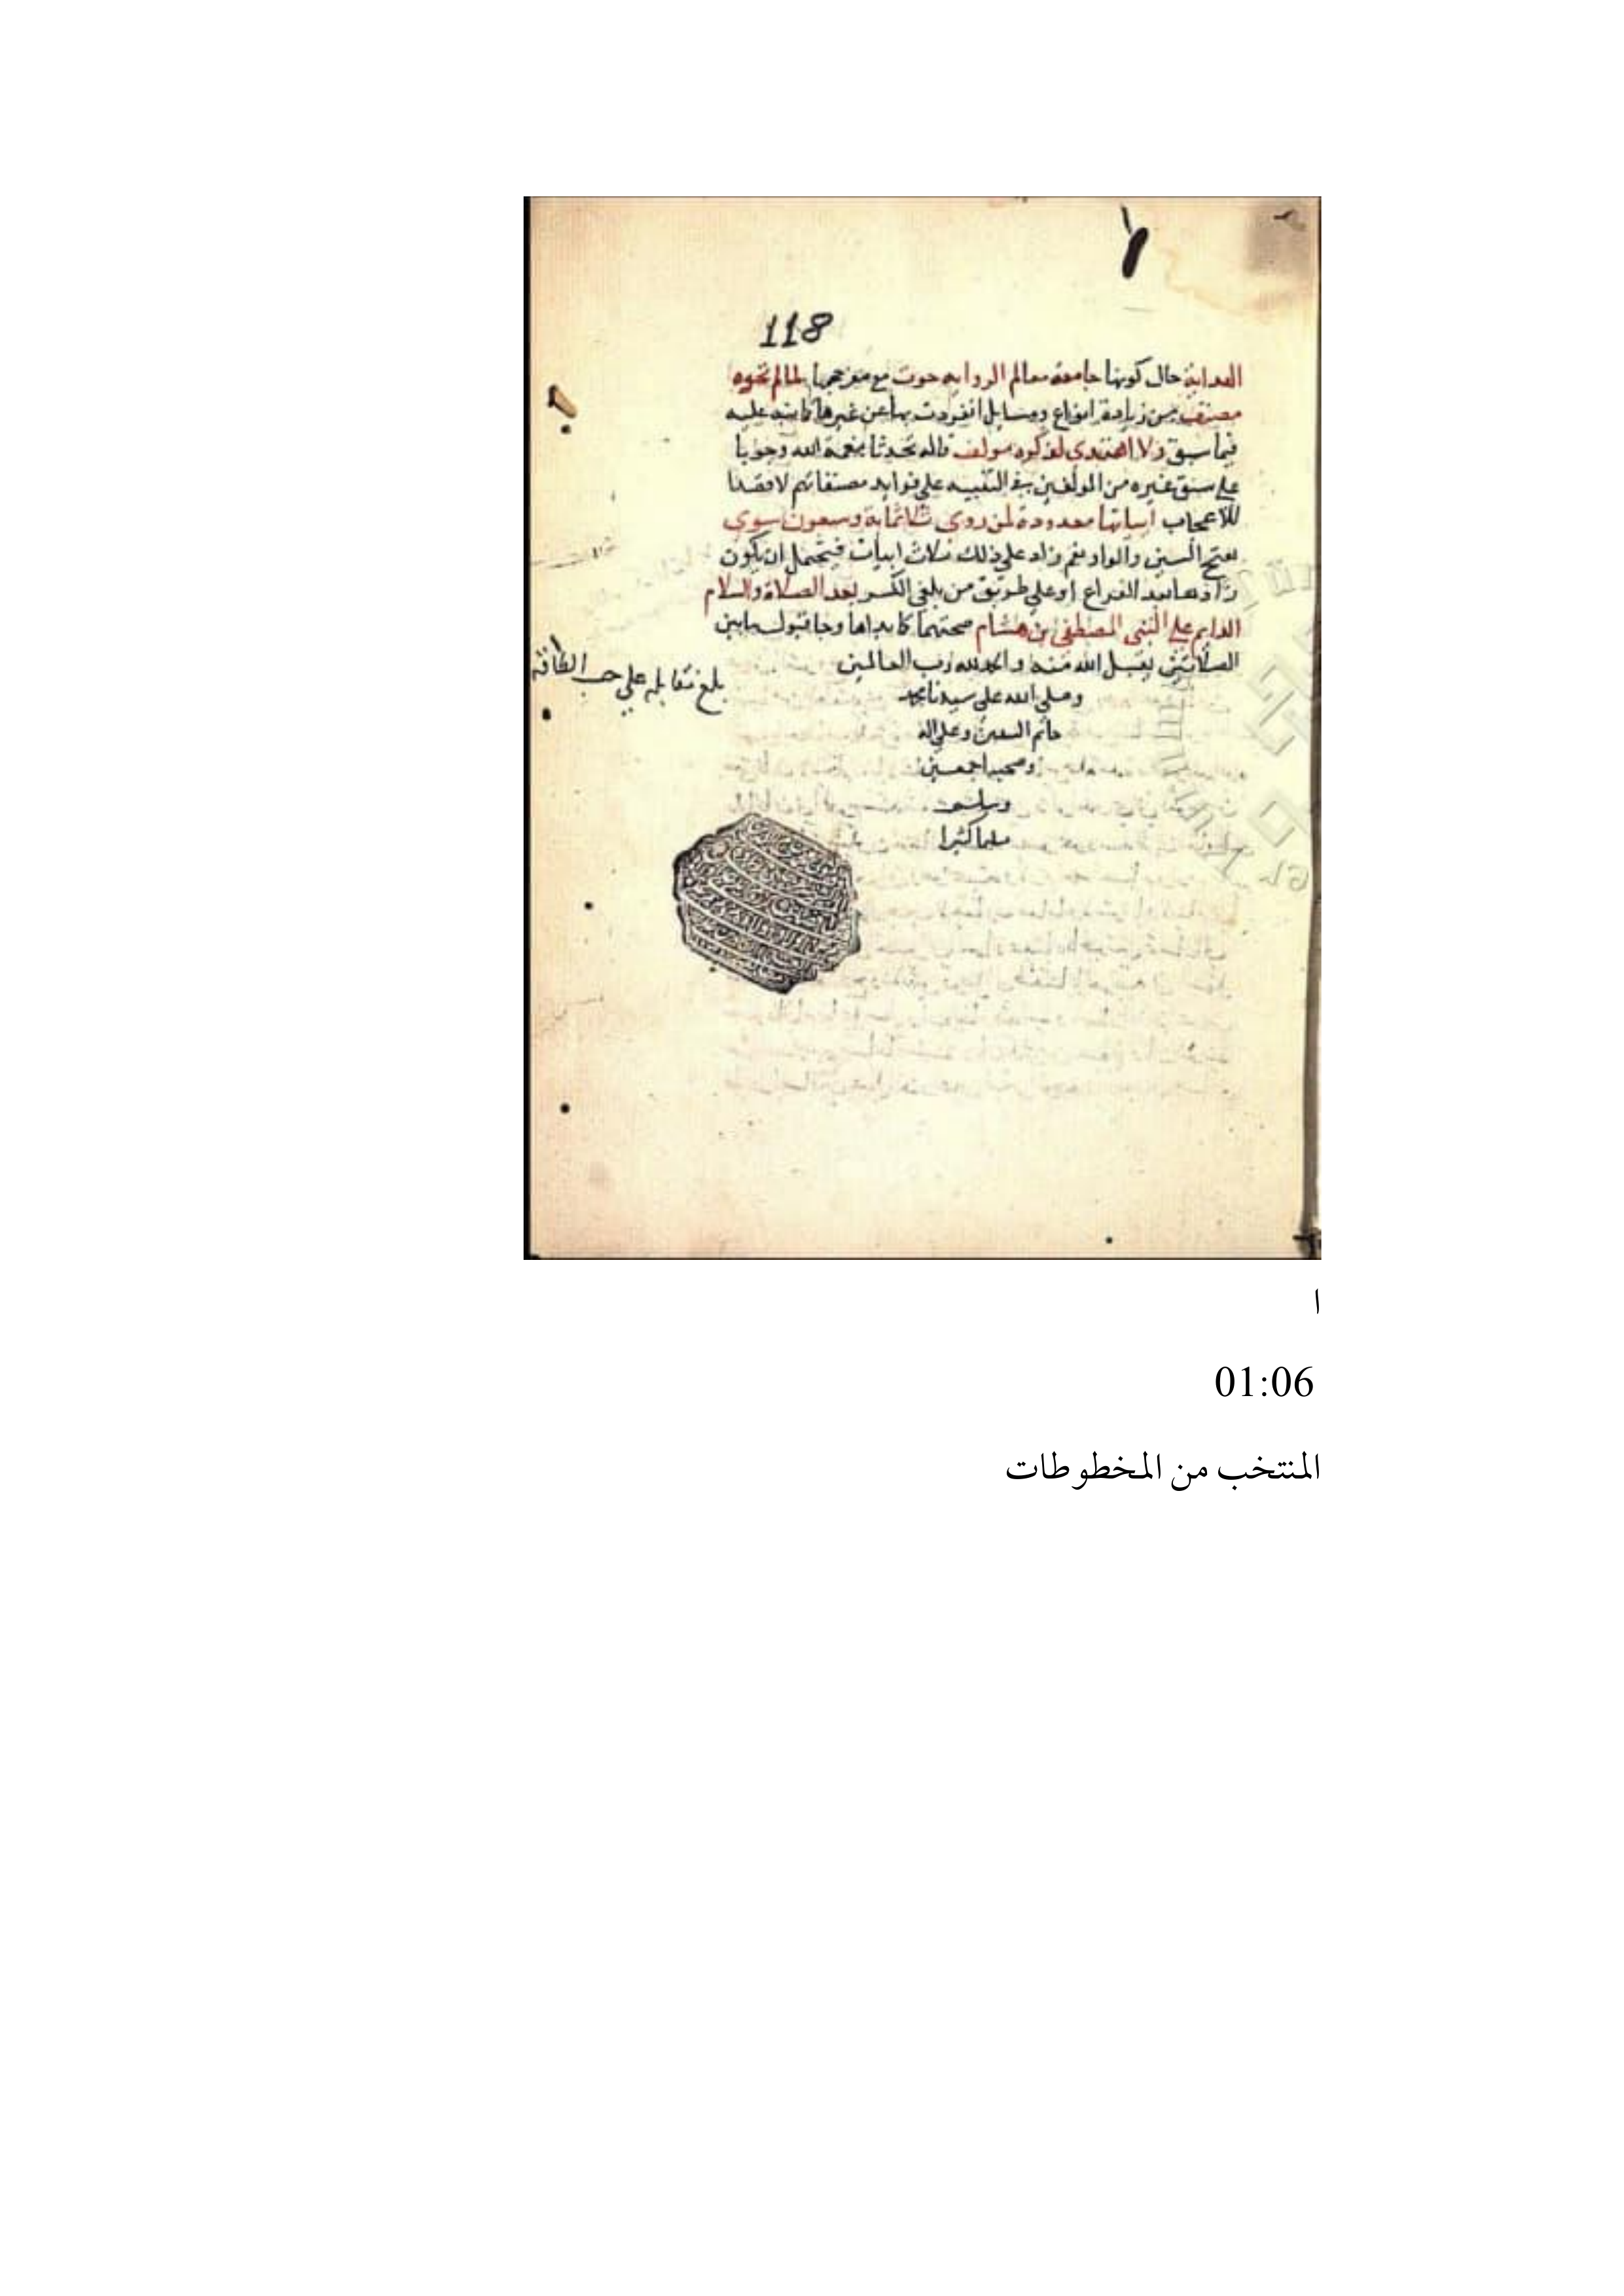 118
الهداية حال كونها جامعة معالم الرواية حوت مع صغر حجمها لما لم تحوه
مصنف من زيادة انواع ومسايل انفردت بها عن غيرها كما نبه عليه
فيما سبق ولا اهتدى لذكره مولف قاله تحدثا بنعمة الله وجريا
على سنن غيره من المولفين في التنبيه على فوايد مصنفاتهم لا قصدا
للاعجاب ابياتها معدودة لمن روى ثلاثماية وسبعون سوى
بفتح السين والواو نعم زاد على ذلك ثلاث ابيات فيحتمل ان يكون
زادها بعد الفراغ او على طريق من يلغي الكسر بعد الصلاة والسلام
الدايم على النبي المصطفى بن هاشم ختمها كما بداها رجا قبول ما بين
الصلاتين يقبل الله منه والحمد لله رب العالمين
بلغ مقابلة على حسب الطاقة
وصلى الله على سيدنا محمد
خاتم النبيين وعلى اله
وصحبه اجمعين
وسلم
تسليما كثيرا
ا
01:06
المنتخب من المخطوطات